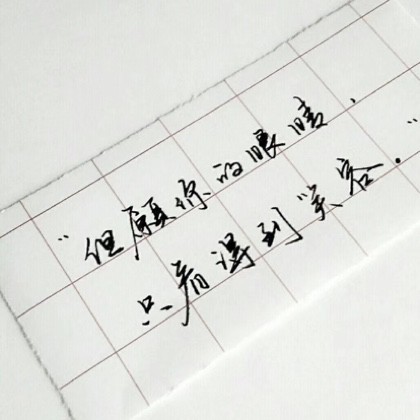 “但愿你的眼睛，
只看得到笑容。”